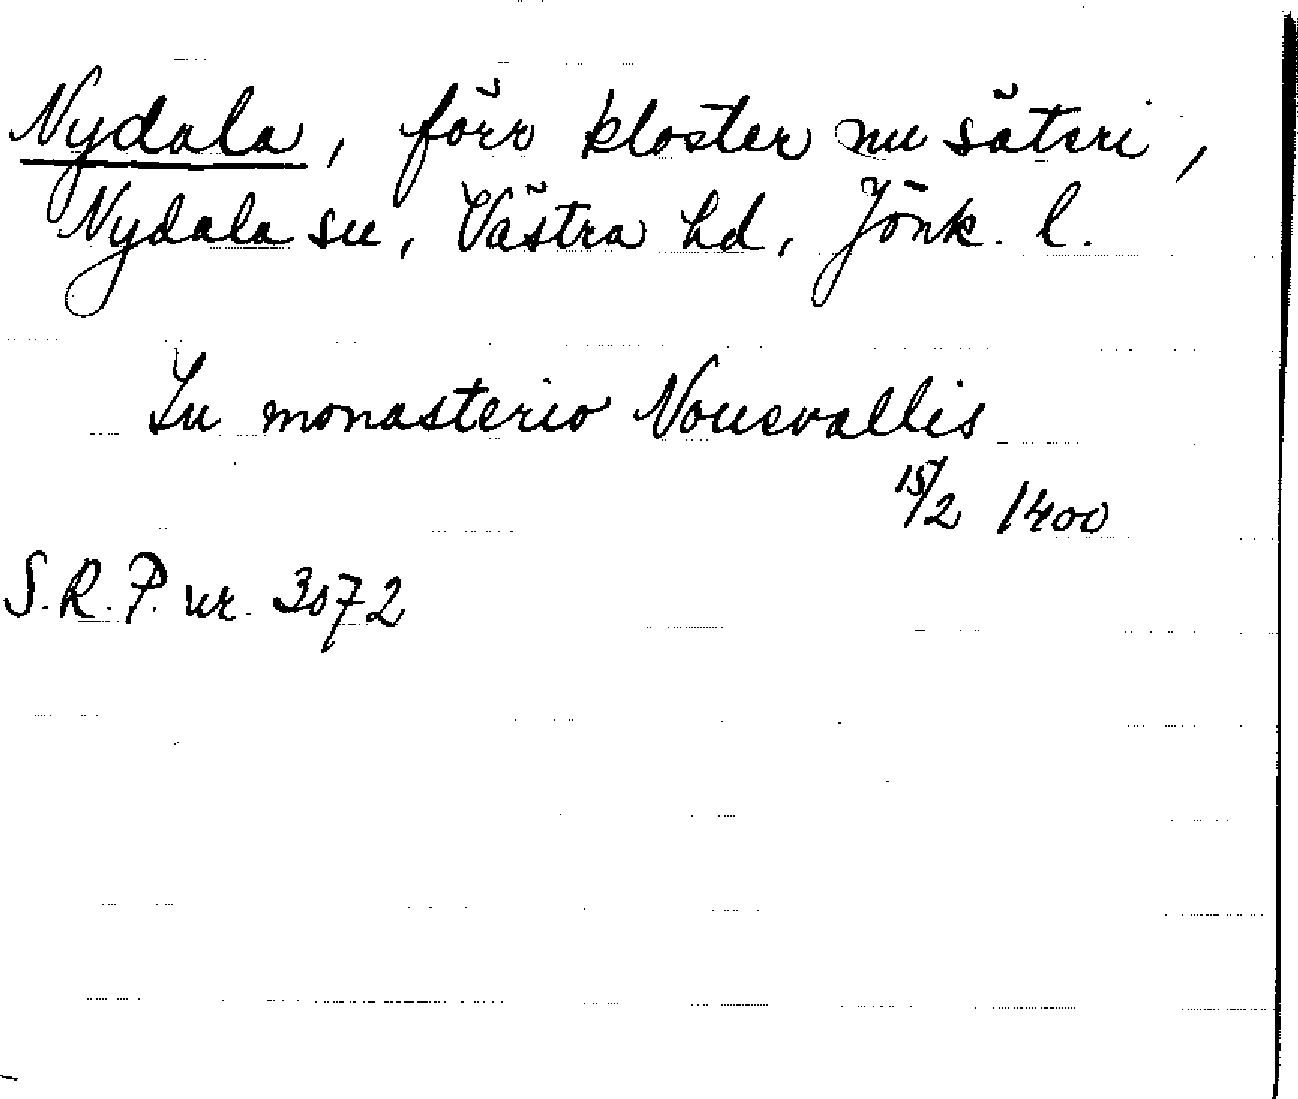 Nydala, förr kloster nu säteri,
Nydala sn, Västra hd, Jönk. l.
In monasterio Nouevallis
15/2 1400
S.R.P. nr. 3072